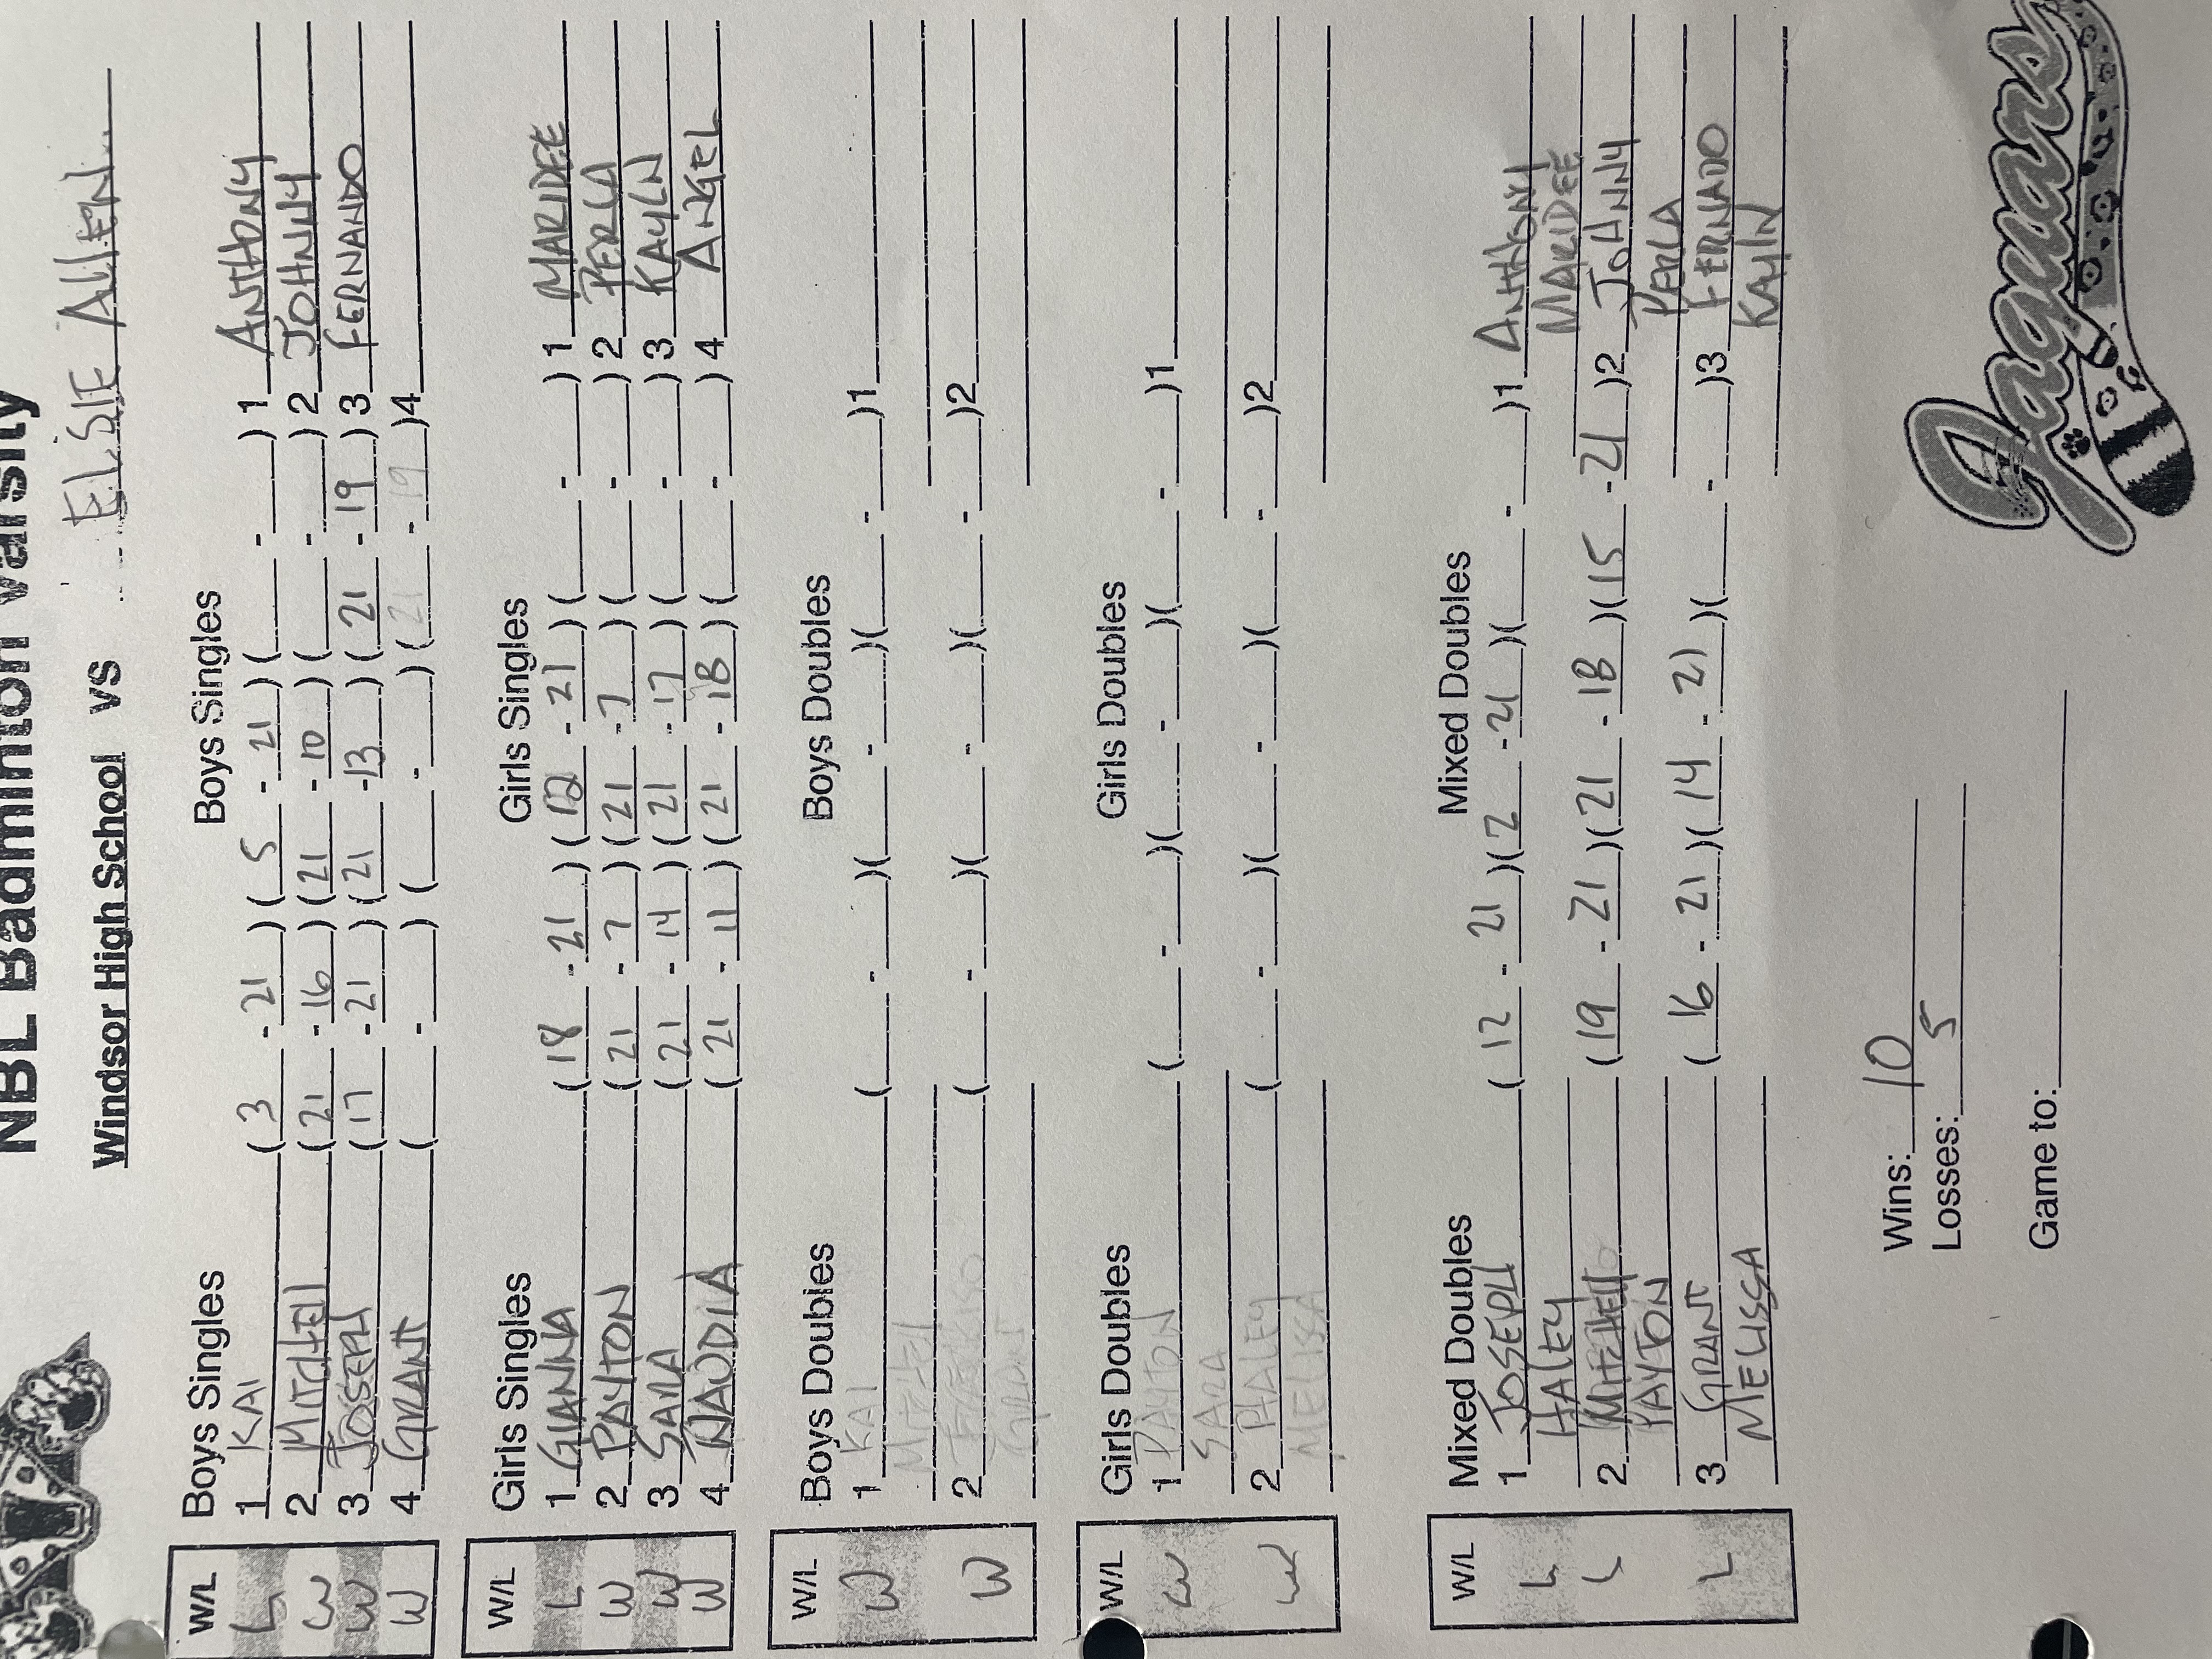 NBL Badminton Varsity
Windsor High School vs ELSIE ALLEN
W/L Boys Singles Boys Singles
L 1 KAI (3 - 21) (5 - 21) ( - ) 1 ANTHONY
W 2 MITCHELL (21 - 16) (21 - 10) ( - ) 2 JOHNNY
W 3 JOSEPH (17 - 21) (21 - 13) (21 - 19) 3 FERNANDO
W 4 GRANT ( - ) ( - ) (21 - 19) 4
W/L Girls Singles Girls Singles
L 1 GIANNA (18 - 21) (12 - 21) ( - ) 1 MARIDEE
W 2 PAYTON (21 - 7) (21 - 7) ( - ) 2 PERLA
W 3 SARA (21 - 14) (21 - 17) ( - ) 3 KAYLN
W 4 NAUDIA (21 - 11) (21 - 18) ( - ) 4 ANGEL
W/L Boys Doubles Boys Doubles
W 1 KAI ( - )( - )( - )1
W 2 ( - )( - )( - )2
GRANT
W/L Girls Doubles Girls Doubles
W 1 PAYTON ( - )( - )( - )1
SARA
W 2 HALEY ( - )( - )( - )2
MELISSA
W/L Mixed Doubles Mixed Doubles
L 1 JOSEPH (12 - 21)(2 - 21)( - )1 ANTHONY
HALEY MARIDEE
L 2 MITCHELL (19 - 21)(21 - 18)(15 - 21)2 JOHNNY
PAYTON PERLA
L 3 GRANT (16 - 21)(14 - 21)( - )3 FERNADO
MELISSA KAYLN
Wins: 10
Losses: 5
Game to:
Jaguars